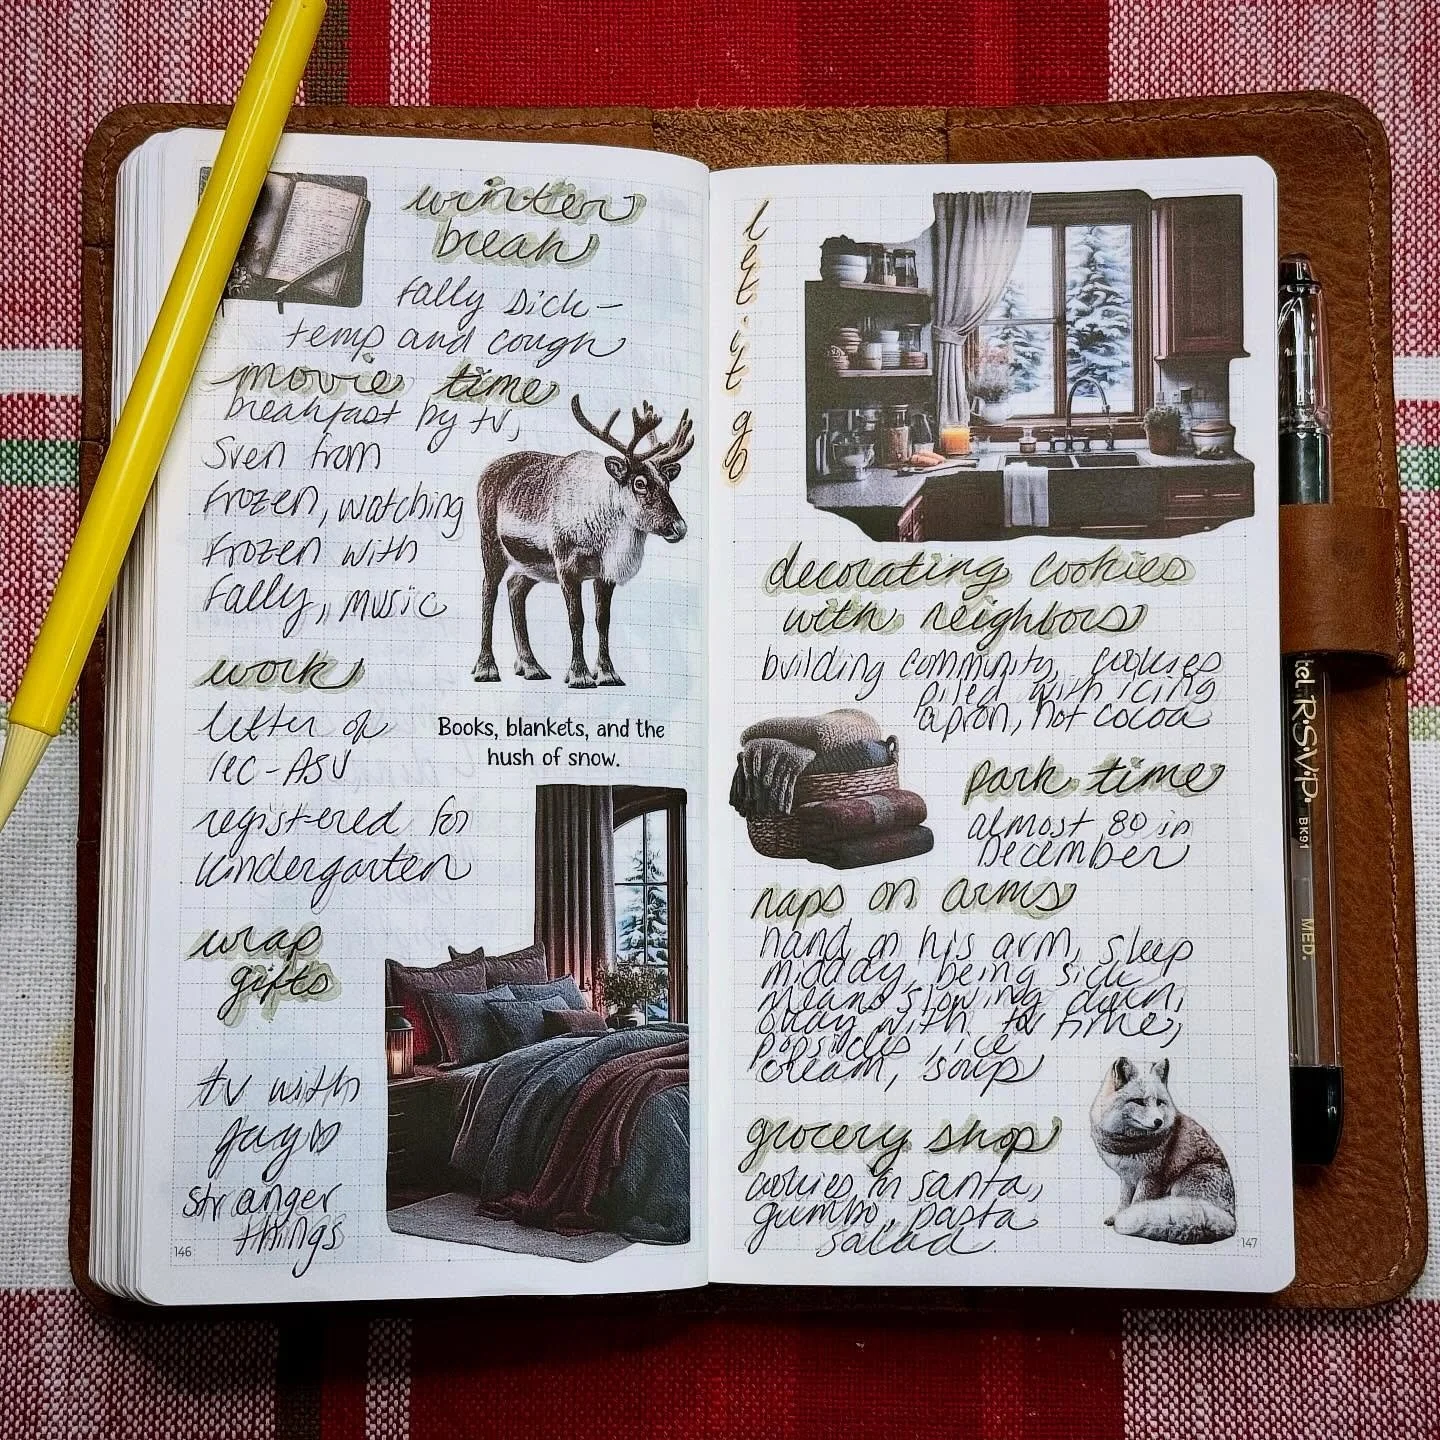 winter
break
Fally sick –
temp and cough
movie time
breakfast by tv,
Sven from
Frozen, watching
Frozen with
Fally, music
work
letter of
rec - ASU
registered for
kindergarten
Books, blankets, and the
hush of snow.
wrap
gifts
tv with
Jay
stranger
things
146
let it go
decorating cookies
with neighbors
building community, cookies
piled with icing
apron, hot cocoa
park time
almost 80 in
December
naps on arms
hand on his arm, sleep
midday, being sick
means slowing down,
okay with tv time,
popsicles, ice
cream, soup
grocery shop
cookies n santa,
gumbo, pasta
salad
147
tel R.S.V.P.
BK91
MED.